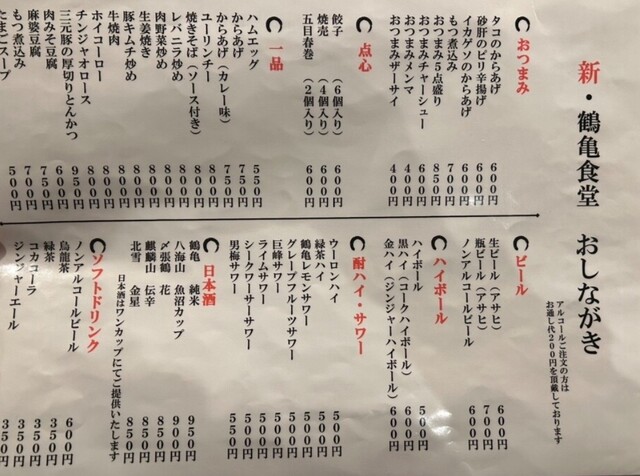 新・鶴亀食堂 おしながき
アルコールご注文の方は
お通し代200円を頂戴しております
おつまみ
タコのからあげ 600円
砂肝のピリ辛揚げ 600円
イカゲソのからあげ 600円
もつ煮込み 700円
おつまみ5点盛り 850円
おつまみチャーシュー 600円
おつまみメンマ 400円
おつまみザーサイ 400円
点心
餃子 (6個入り) 600円
焼売 (4個入り) 600円
五目春巻 (2個入り) 600円
一品
ハムエッグ 550円
からあげ 750円
からあげ(カレー味)
ユーリンチー 800円
焼きそば(ソース付き)
レバニラ炒め 800円
肉野菜炒め 800円
生姜焼き 800円
豚キムチ炒め 800円
牛焼肉
ホイコーロー
チンジャオロース 900円
三元豚の厚切りとんかつ 950円
肉みそ豆腐 600円
麻婆豆腐 750円
もつ煮込み 700円
たまごスープ 500円
ビール
生ビール(アサヒ) 600円
瓶ビール(アサヒ) 700円
ノンアルコールビール 600円
ハイボール
ハイボール 500円
黒ハイ(コークハイボール) 600円
金ハイ(ジンジャーハイボール) 600円
酎ハイ・サワー
ウーロンハイ 500円
緑茶ハイ 500円
鶴亀レモンサワー 500円
グレープフルーツサワー 550円
巨峰サワー 550円
ライムサワー 550円
シークワーサーサワー 550円
男梅サワー 550円
日本酒
鶴亀 純米 950円
八海山 魚沼カップ 950円
〆張鶴 花 850円
麒麟山 伝辛 850円
北雪 金星 850円
日本酒はワンカップにてご提供いたします
ソフトドリンク
ノンアルコールビール 600円
烏龍茶 350円
緑茶 350円
コカコーラ 350円
ジンジャーエール 350円